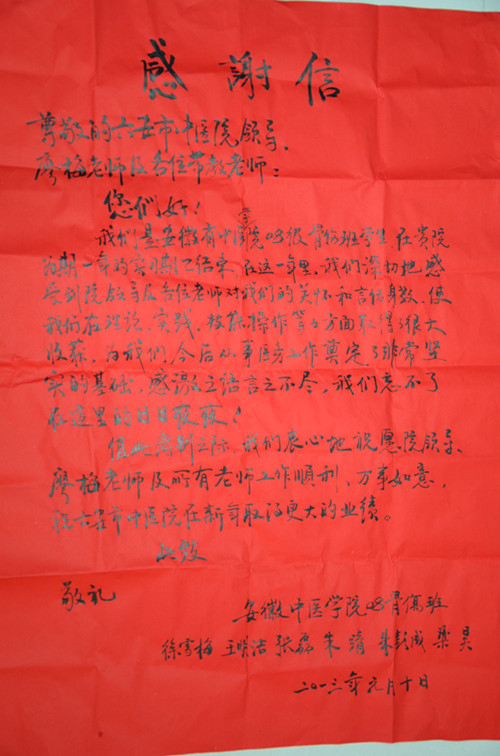 感謝信
尊敬的六安市中医院领导、
廖梅老师及各位带教老师:
您们好!
我们是安徽省中医学院08级骨伤班学生,在贵院
为期一年的实习期已结束,在这一年里,我们深切地感
受到院领导及各位老师对我们的关怀和言传身教,使
我们在理论、实践、技能操作等各方面取得了很大
收获,为我们今后从事医务工作奠定了非常坚
实的基础,感激之语言之不尽,我们忘不了
在这里的日日夜夜!
值此离别之际,我们衷心地祝愿院领导、
廖梅老师及所有老师工作顺利、万事如意,
祝六安市中医院在新年取得更大的业绩。
此致
敬礼
安徽中医学院08骨傷班
徐雪梅 王明洁 张磊 朱靖 朱彭成 梁昊
二〇一三年元月十日